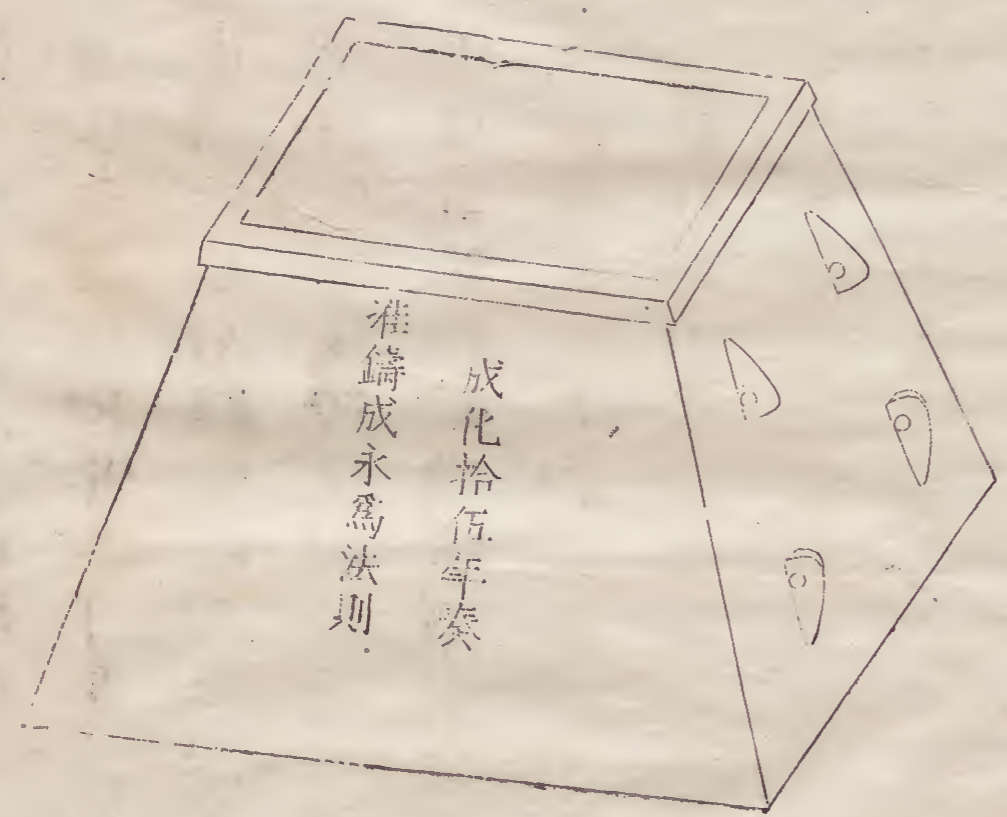 成化拾伍年奏
准鑄成永爲法則